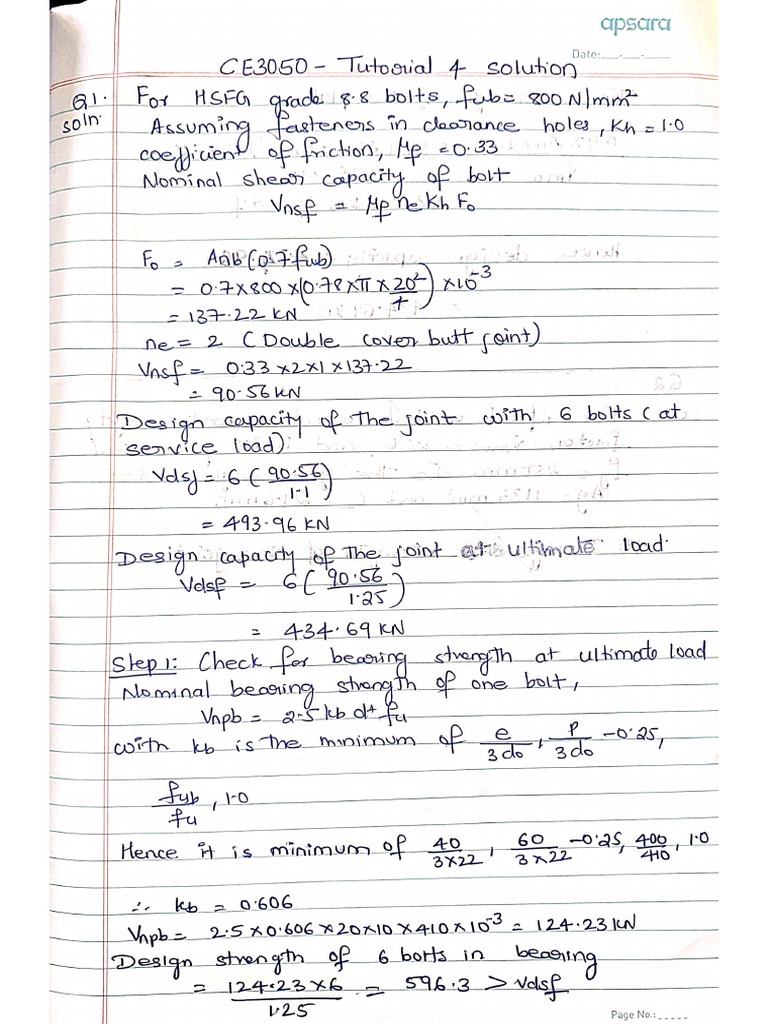 apsara
Date:
CE3050 - Tutorial 4 solution
Q1. For HSFG grade 8.8 bolts, fub = 800 N/mm²
soln. Assuming fasteners in clearance holes, Kh = 1.0
coefficient of friction, μf = 0.33
Nominal shear capacity of bolt
Vnsf = μf ne Kh Fo
Fo = Anb (0.7 fub)
= 0.7 × 800 × (0.78 × π × 20²/4) × 10⁻³
= 137.22 KN
ne = 2 (Double cover butt joint)
Vnsf = 0.33 × 2 × 1 × 137.22
= 90.56 KN
Design capacity of the joint with 6 bolts (at
service load)
Vdsf = 6 (90.56/1.1)
= 493.96 KN
Design capacity of the joint at ultimate load.
Vdsf = 6 (90.56/1.25)
= 434.69 KN
Step 1: Check for bearing strength at ultimate load
Nominal bearing strength of one bolt,
Vnpb = 2.5 kb dt fu
with kb is the minimum of e/3do, p/3do - 0.25,
fub/fu, 1.0
Hence it is minimum of 40/3×22, 60/3×22 - 0.25, 400/410, 1.0
∴ kb = 0.606
Vnpb = 2.5 × 0.606 × 20 × 10 × 410 × 10⁻³ = 124.23 KN
Design strength of 6 bolts in bearing
= 124.23 × 6/1.25 = 596.3 > Vdsf
Page No.: